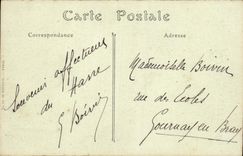 Carte Postale
Correspondance
Adresse
Souvenir affectueux
du Havre
G. Boivin
Mademoiselle Boivin
rue des Ecoles
Gournay en Bray